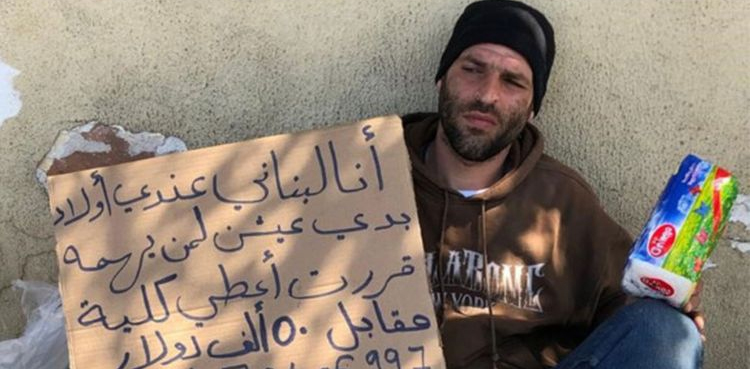 أنا لبناني عندي أولاد
بدي عيش لمن يهمه
قررت أعطي كلية
مقابل ٥٠ ألف دولار
LABONG
W YORK